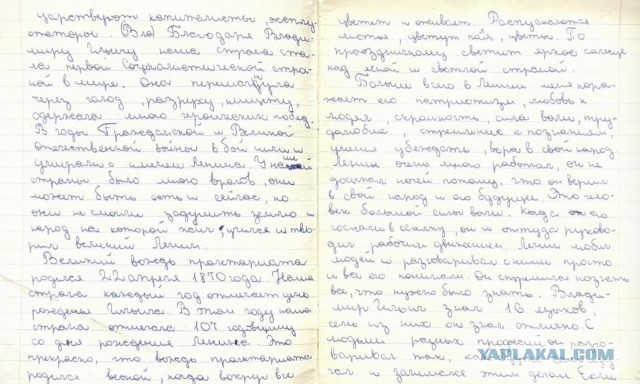 царствуют капиталисты, эксплу-
ататоры. Благодаря Влади-
миру Ильичу наша страна ста-
ла первой социалистической стра-
ной в мире. Она перешагнула
через голод, разруху, нищету,
одержала много героических побед.
В годы Гражданской и Великой
отечественной войны в бой шли и
умирали с именем Ленина. У нашей
страны было много врагов, они
может быть есть и сейчас, но
они не смогли задушить землю и
народ на которой жил, учился и тво-
рил великий Ленин.
Великий вождь пролетариата
родился 22 апреля 1870 года. Наша
страна каждый год отмечает день
рождения Ильича. В этом году наша
страна отмечала 107 годовщину
со дня рождения Ленина. Это
прекрасно, что вождь пролетариата
родился весной, когда вокруг все
цветет и оживает. Распускаются
листья, цветут поля, цветы. По
праздничному светит яркое солнце
над ясной и светлой страной.
Больше всего в Ленине меня пора-
жает его патриотизм, любовь к
людям, скромность, сила воли, тру-
долюбие, стремление к познаниям,
умение убеждать, вера в свой народ.
Ленин очень много работал, он не
досыпал ночей потому, что он верил
в свой народ и его будущее. Это чело-
век большой силы воли. Когда его
сослали в ссылку, он и оттуда руково-
дил рабочим движением. Ленин любил
людей и разговаривал с ними просто
и все его понимали. Он стремился познать
все, что нужно было знать. Влади-
мир Ильич знал 16 языков,
семь из них он знал отлично. С
людьми разных профессий он разго-
варивал так, как будто
и занимался этим делом. Если
YAPLAKAL.COM